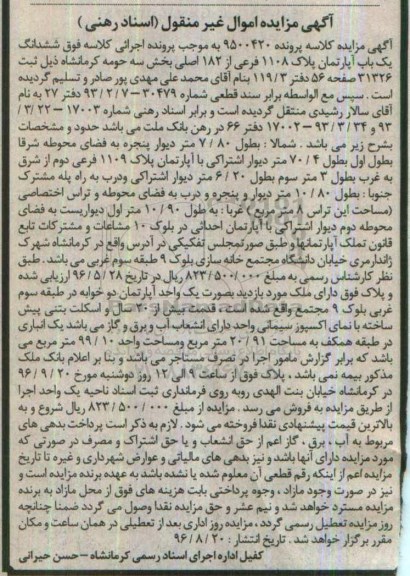 آگهی مزایده اموال غیر منقول (اسناد رهنی)
آگهی مزایده کلاسه پرونده ۹۵۰۰۴۲۰ به موجب پرونده اجرائی کلاسه فوق ششدانگ
یک باب آپارتمان پلاک ۱۱۰۸ فرعی از ۱۸۲ اصلی بخش سه حومه کرمانشاه ذیل ثبت
۳۱۳۲۶ صفحه ۵۶ دفتر ۱۱۹/۳ بنام آقای محمد علی مهدی پور صادر و تسلیم گردیده
است . سپس مع الواسطه برابر سند قطعی شماره ۳۰۴۷۹ – ۹۳/۲/۷ دفتر ۲۷ به نام
آقای سالار رشیدی منتقل گردیده است و برابر اسناد رهنی شماره ۱۷۰۰۳ – ۲۲/۳/
۹۳ و ۹۳/۳/۳۴ – ۱۷۰۰۲ دفتر ۶۶ در رهن بانک ملت می باشد حدود و مشخصات
بشرح زیر می باشد . شمالا : بطول ۷/۸۰ متر دیوار پنجره به فضای محوطه شرقا
بطول اول بطول ۷۰/۴ متر دیوار اشتراکی با آپارتمان پلاک ۱۱۰۹ فرعی دوم از شرق
به غرب بطول ۳ متر سوم بطول ۶/۲۰ متر دیوار اشتراکی ودرب به راه پله مشترک
جنوبا : بطول ۱۰/۸۰ متر دیوار و پنجره و درب به فضای محوطه و تراس اختصاصی
(مساحت این تراس ۸ متر مربع) غربا : به طول ۱۰/۹۰ متر اول دیواریست به فضای
محوطه دوم دیوار اشتراکی با آپارتمان احداثی در بلوک ۱۰ مشاعات و مشترکات تابع
قانون تملک آپارتمانها و طبق صورتمجلس تفکیکی در آدرس واقع در کرمانشاه شهرک
ژاندارمری خیابان دانشگاه مجتمع خانه سازی بلوک ۹ طبقه سوم غربی می باشد . طبق
نظر کارشناس رسمی به مبلغ ۸۲۳/۵۰۰/۰۰۰ ریال در تاریخ ۹۶/۵/۲۸ ارزیابی شده
و پلاک فوق دارای ملک مورد بازدید بصورت یک واحد آپارتمان دو خوابه در طبقه سوم
غربی بلوک ۹ مجتمع واقع شده است . قدمت بیش از ۲۰ سال و اسکلت بتنی پیش
ساخته با نمای اکسپوز سیمانی واحد دارای انشعاب آب و برق و گاز می باشد یک انباری
در طبقه همکف به مساحت ۲۰/۹۱ متر مربع ومساحت واحد ۹۹/۱۰ متر مربع می
باشد که برابر گزارش مامور اجرا در تصرف مستاجر می باشد و بنا بر اعلام بانک ملک
مذکور بیمه نمی باشد . پلاک فوق از ساعت ۹ الی ۱۲ روز دوشنبه مورخ ۹۶/۹/۲۰
در کرمانشاه خیابان بنت الهدی روبه روی فرمانداری ثبت اسناد ناحیه یک واحد اجرا
از طریق مزایده به فروش می رسد . مزایده از مبلغ ۸۲۳/۵۰۰/۰۰۰ ریال شروع و به
بالاترین قیمت پیشنهادی نقدا فروخته می شود . لازم به ذکر است پرداخت بدهی های
مربوط به آب ، برق ، گاز اعم از حق انشعاب و یا حق اشتراک و مصرف در صورتی که
مورد مزایده دارای آنها باشد و نیز بدهی های مالیاتی و عوارض شهرداری و غیره تا تاریخ
مزایده اعم از اینکه رقم قطعی آن معلوم شده یا نشده باشد به عهده برنده مزایده است و
نیز در صورت وجود مازاد ، وجوه پرداختی بابت هزینه های فوق از محل مازاد به برنده
مزایده مسترد خواهد شد و نیم عشر و حق مزایده نقدا وصول می گردد ضمنا چنانچه
روز مزایده تعطیل رسمی گردد ، مزایده روز اداری بعد از تعطیلی در همان ساعت و مکان
مقرر برگزار خواهد شد . تاریخ انتشار : ۹۶/۸/۲۰
کفیل اداره اجرای اسناد رسمی کرمانشاه – حسن حیرانی